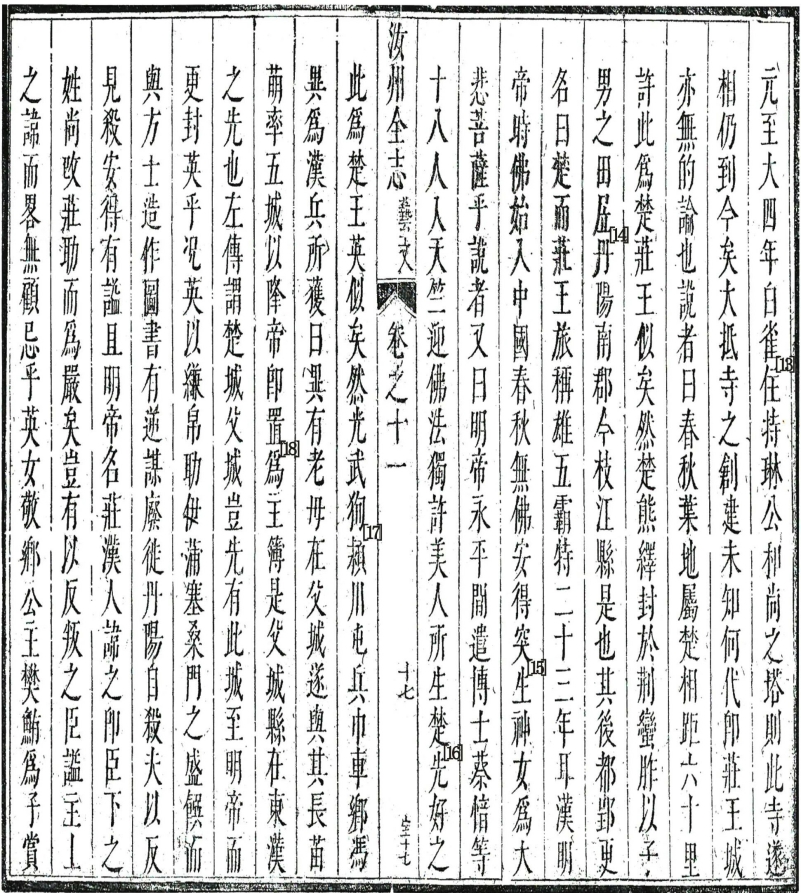 元至大四年白雀住持琳公和尚之塔則此寺遂
相仍到今矣大抵寺之創建未知何代即莊王城
亦無的論也說者曰春秋葉地屬楚相距六十里
許此爲楚莊王似矣然楚熊繹封於荊蠻胙以子
男之田居丹陽南郡今枝江縣是也其後都郢更
名曰楚而莊王旅稱雄五霸特二十三年耳漢明
帝時佛始入中國春秋無佛安得突生神女爲大
悲菩薩乎說者又曰明帝永平間遣博士蔡愔等
十八人入天竺迎佛法獨許美人所生楚先好之
汝州全志 藝文 卷之十一 十七
此爲楚王英似矣然光武狥潁川屯兵巾車鄉馮
異爲漢兵所獲曰異有老母在父城遂與其長苗
萌率五城以降帝即置爲主簿是父城縣在東漢
之先也左傳謂楚城父城豈先有此城至明帝而
更封英乎況英以縑帛助伊蒲塞桑門之盛饌而
與方士造作圖書有逆謀廢徙丹陽自殺夫以反
見殺安得有謚且明帝名莊漢人諱之即臣下之
姓尚改莊助而爲嚴矣豈有以反叛之臣謚主上
之諱而畧無顧忌乎英女敬鄉公主樊鮪爲子賞
[13]
[14]
[15]
[16]
[17]
[18]